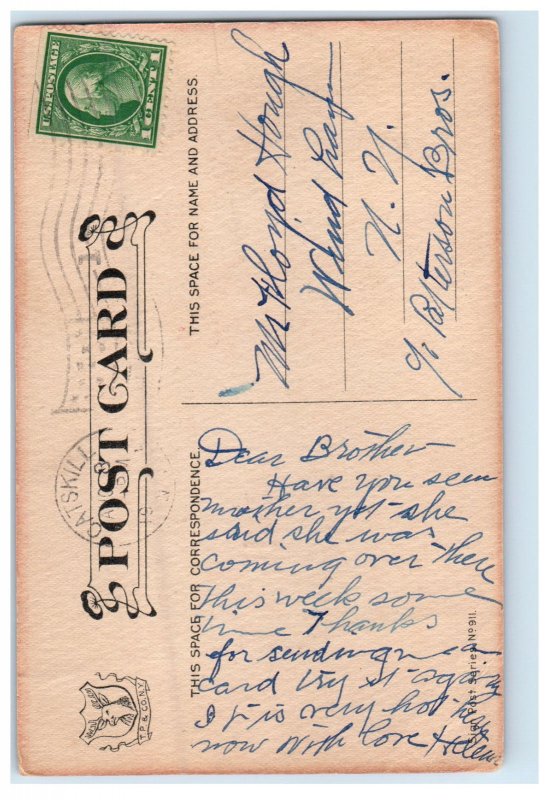 U.S. POSTAGE
1 CENT 1
CATSKILL
N.Y.
POST CARD
T.P. & CO. N.Y.
THIS SPACE FOR CORRESPONDENCE.
THIS SPACE FOR NAME AND ADDRESS.
Dear Brother
Have you seen
mother yet she
said she was
coming over there
This week some
time Thanks
for sending me a
card try it again
It is very hot here
now With love Helen
Mr Floyd Hough
Windham
N. Y.
% Patterson Bros.
Sign Post Series. Nº 911.